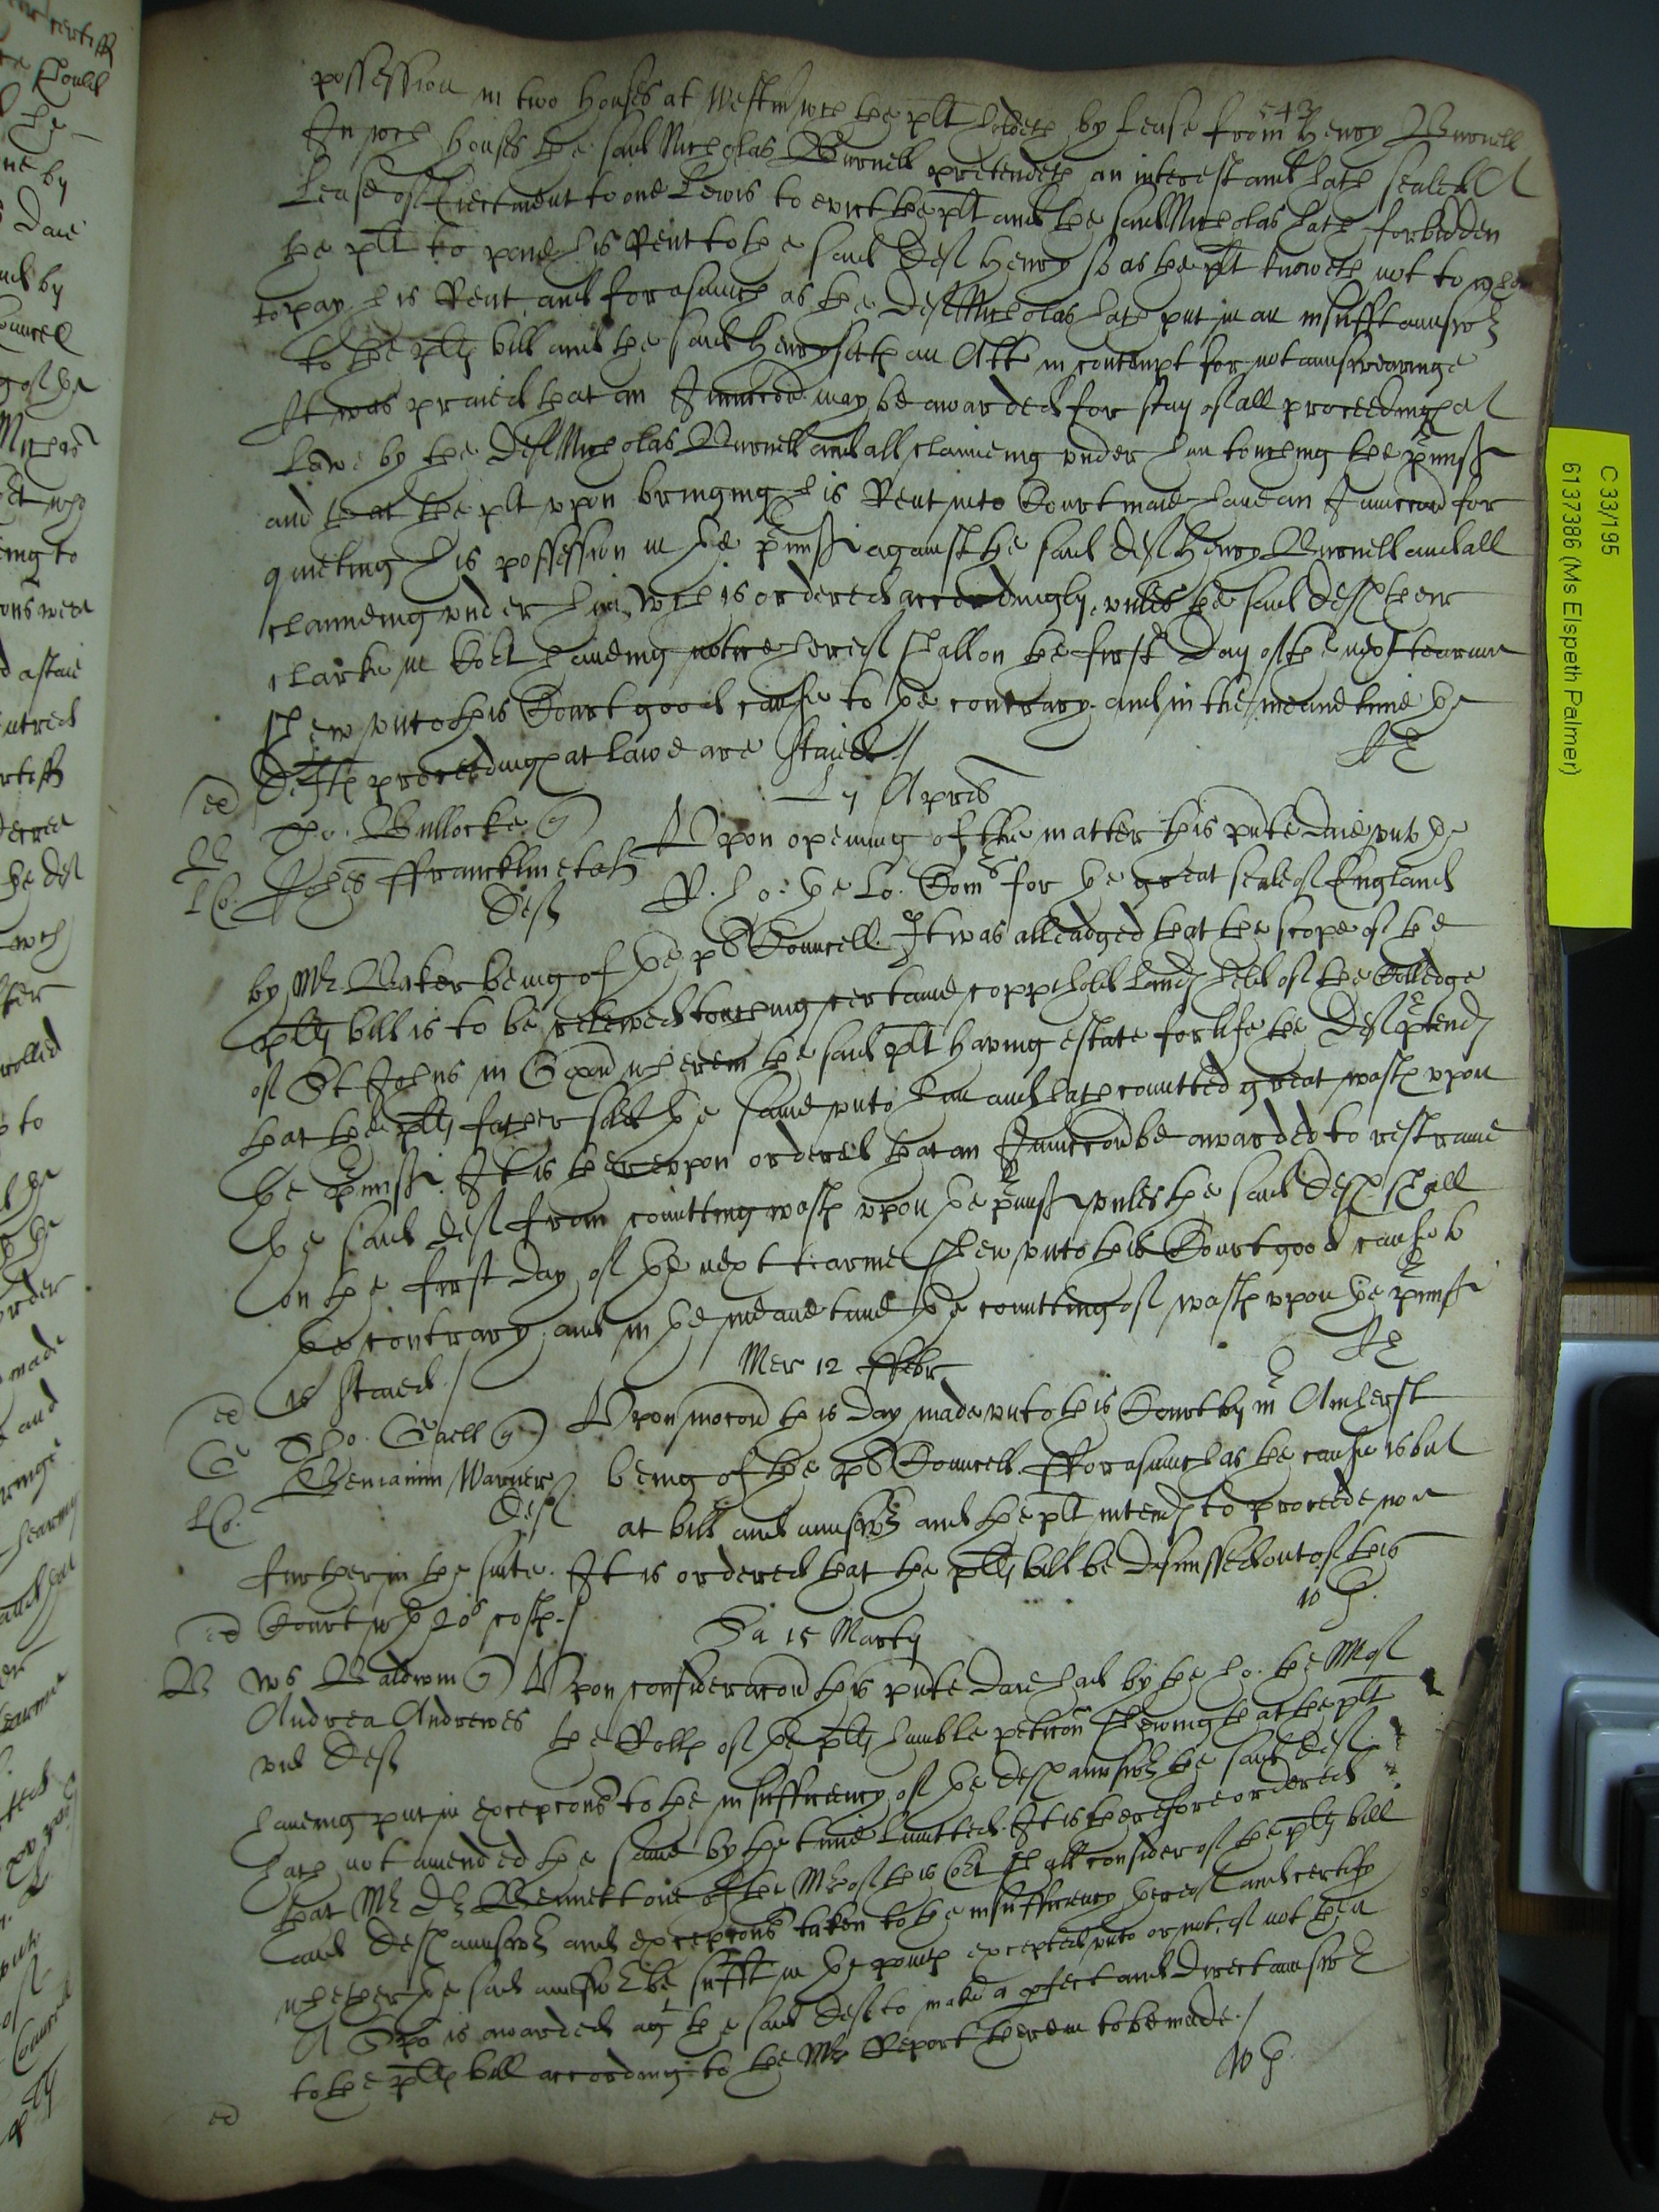 543
possession in two houses at Westm wch the plt holdeth by Lease from Henry Burnell
In wch houses the said Nicholas Burnell pretendeth an interest and hath sealed A
Lease of Eiectment to one Lewis to evict the plt and the said Nicholas hath forbidden
the plt to paie his Rent to the said Def Henry so as the plt knoweth not to whom
to pay his Rent, and forasmuch as the Def Nicholas hath put in an insufft answr
to the plts bill and the said Henry sitth an Att in contempt for not answearinge
It was praied that an Iniuccon may be awarded for stay of all proceedings at
Lawe by the Def Nicholas Burnell and all claiming under him touching the pmiss
and that the plt upon bringing his Rent into Court maie have an Iniuccon for
quieting his possession in the pmiss against the said def Henry Burnell and all
claimeing under him, wch is ordered accordingly, unles the said Defts their
clarke in Cort haveing notice hereof shall on the first Day of the next tearme
shew unto this Court good cause to the contrary and in the meane time the
Defts proceedings at lawe are staied /
L 7 Apris
Tho. Bullocke
Johes Francklin et ah
Def
Upon opening of the matter this pnte Daie unto the
R. ho: the Lo. Coms for the great seale of England
by Mr. Baker being of the pts Councell. It was alleadged that the scope of the
plts bill is to be releived touching certaine coppihold lands held of the Colledge
of St Johns in Oxon wherein the said plt having estate for life the Def ptends
that the plts father sold the same unto him and hath comitted great wast upon
the pmiss. It is thereupon ordered that an Iniuccon be awarded to restraine
the said def from comitting wast upon the pmiss unles the said Def shall
on the first Day of the next tearme shew unto this Court good cause to
the contrary, and in the meane time the comitting of wast upon the pmiss
is staied /
Mer 12 Febr
Tho. Gaell
Beniamin Warner
Def
Upon mocon this Day made unto this Court by mr Amherst
being of the pts Councell. Forasmuch as the cause is but
at bill and answr and the plt intends to proceede noe
further in the suite. It is ordered that the plts bill be dismissed out of this
Court wth 20s costs /
Sa 15 Martij
Ws Baldwin
Andrea Andrewes
vid Def
Upon consideracon this pnte daie had by the ho. the Mr of
the Rolls of the plts humble peticon shewing that the plt
haveing put in excepcons to the insufficiency of the defts answr the said Deft
hath not amended the same by the time limitted. It is therefore ordered
that Mr Dr Bennett one of the Mrs of this Cort shall consider of the plts bill
and Defts answr and excepcons taken to the insufficiency thereof and certify
whether the said answr be sufft in the points excepted unto or not, if not then
A Spa is awarded agt the said Deft to make a pfect and direct answr
to the plts bill according to the Mrs Report therein to be made /
C 33/195
6137386 (Ms Elspeth Palmer)